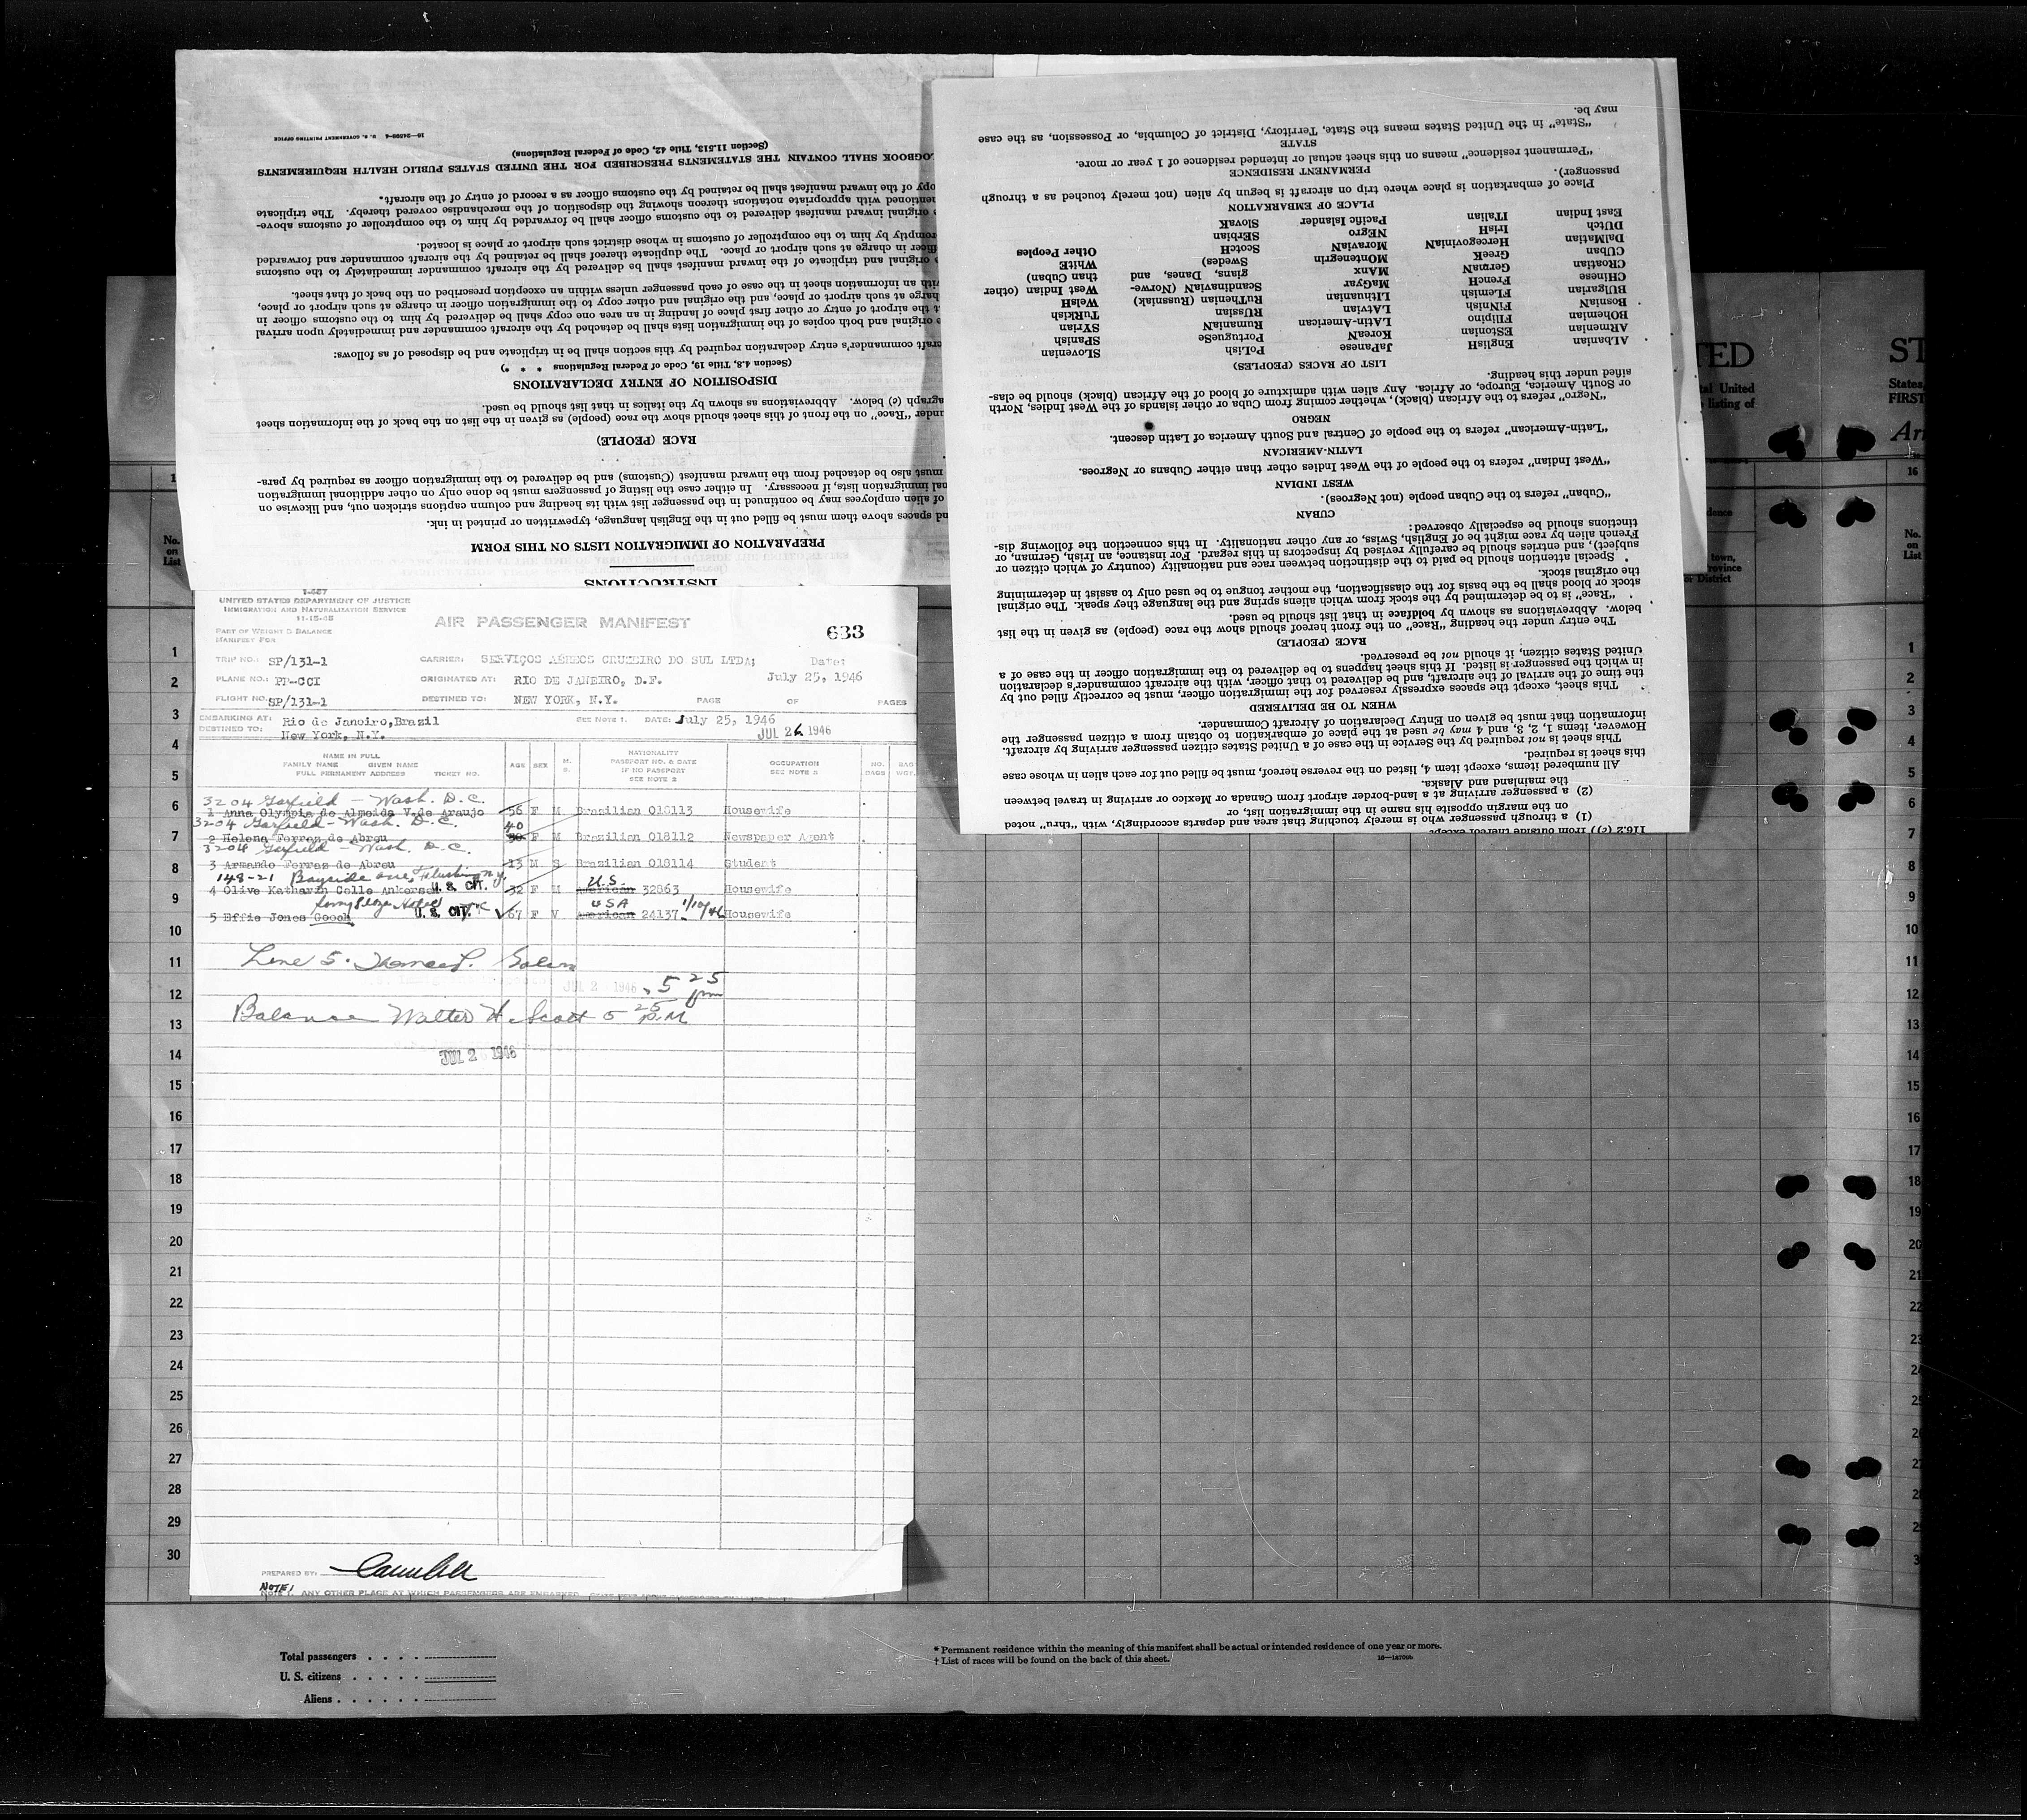 I-487
UNITED STATES DEPARTMENT OF JUSTICE
IMMIGRATION AND NATURALIZATION SERVICE
11-15-45
AIR PASSENGER MANIFEST
633
PART OF WEIGHT & BALANCE
MANIFEST FOR
TRIP NO.: SP/131-1 CARRIER: SERVIÇOS AÉREOS CRUZEIRO DO SUL LTDA; Date:
PLANE NO.: PP-CCI ORIGINATED AT: RIO DE JANEIRO, D.F. July 25, 1946
FLIGHT NO. SP/131-1 DESTINED TO: NEW YORK, N.Y. PAGE OF PAGES
EMBARKING AT: Rio de Janeiro,Brazil SEE NOTE 1. DATE: July 25, 1946
DESTINED TO: New York, N.Y. JUL 26 1946
NAME IN FULL
FAMILY NAME GIVEN NAME
FULL PERMANENT ADDRESS TICKET NO.
AGE SEX M. S.
NATIONALITY
PASSPORT NO. & DATE
IF NO PASSPORT
SEE NOTE 2
OCCUPATION
SEE NOTE 3
NO. BAGS
BAG WGT.
3204 Garfield - Wash. D.C.
1 Anna Olympia de Almeida V.de Araujo 56 F M Brazilian 018113 Housewife
3204 Garfield - Wash. D.C. 40
2 Helena Ferraz de Abreu F M Brazilian 018112 Newspaper Agent
3204 Garfield - Wash. D.C.
3 Armando Ferraz de Abreu 13 M S Brazilian 018114 Student
148-21 Bayside ave, Flushing N.Y. U.S.
4 Olive Katharin Celle Ankersen U.S. CIT. 32 F M American 32863 Housewife
USA
5 Effie Jones Gooch U.S. CIT. 67 F V American 24137 Housewife
Line 5.
JUL 2 1946 5 25 pm
Balance Walter H. Scott 5 25 P.M
JUL 2 1946
PREPARED BY:
NOTE!
NOTE 1. ANY OTHER PLACE AT WHICH PASSENGERS ARE EMBARKED
INSTRUCTIONS
PREPARATION OF IMMIGRATION LISTS ON THIS FORM
nd spaces above them must be filled out in the English language, typewritten or printed in ink.
of alien employees may be continued in the passenger list with its heading and column captions stricken out, and likewise on
nal immigration lists, if necessary. In either case the listing of passengers must be done only on other additional immigration
must also be detached from the inward manifest (Customs) and be delivered to the immigration officer as required by para-
RACE (PEOPLE)
under "Race" on the front of this sheet should show the race (people) as given in the list on the back of the information sheet
agraph (c) below. Abbreviations as shown by the italics in that list should be used.
DISPOSITION OF ENTRY DECLARATIONS
(Section 4.8, Title 19, Code of Federal Regulations * * *)
craft commander's entry declaration required by this section shall be in triplicate and be disposed of as follows:
e original and both copies of the immigration lists shall be detached by the aircraft commander and immediately upon arrival
t the airport of entry or other first place of landing in an area one copy shall be delivered by him to the customs officer in
charge at such airport or place, and the original and other copy to the immigration officer in charge at such airport or place,
with an information sheet in the case of each passenger unless within an exception prescribed on the back of that sheet.
e original and triplicate of the inward manifest shall be delivered by the aircraft commander immediately to the customs
fficer in charge at such airport or place. The duplicate thereof shall be retained by the aircraft commander and forwarded
romptly by him to the comptroller of customs in whose district such airport or place is located.
e original inward manifest delivered to the customs officer shall be forwarded by him to the comptroller of customs above-
entioned with appropriate notations thereon showing the disposition of the merchandise covered thereby. The triplicate
opy of the inward manifest shall be retained by the customs officer as a record of entry of the aircraft.
LOGBOOK SHALL CONTAIN THE STATEMENTS PRESCRIBED FOR THE UNITED STATES PUBLIC HEALTH REQUIREMENTS
(Section 11.513, Title 42, Code of Federal Regulations)
16—24590-4 U. S. GOVERNMENT PRINTING OFFICE
116.2 (c)) from outside thereof except:
(1) a through passenger who is merely touching that area and departs accordingly, with "thru" noted
on the margin opposite his name in the immigration list, or
(2) a passenger arriving at a land-border airport from Canada or Mexico or arriving in travel between
the mainland and Alaska.
All numbered items, except item 4, listed on the reverse hereof, must be filled out for each alien in whose case
this sheet is required.
This sheet is not required by the Service in the case of a United States citizen passenger arriving by aircraft.
However, items 1, 2, 3, and 4 may be used at the place of embarkation to obtain from a citizen passenger the
information that must be given on Entry Declaration of Aircraft Commander.
WHEN TO BE DELIVERED
This sheet, except the spaces expressly reserved for the immigration officer, must be correctly filled out by
the time of the arrival of the aircraft, and be delivered to that officer, with the aircraft commander's declaration
in which the passenger is listed. If this sheet happens to be delivered to the immigration officer in the case of a
United States citizen, it should not be preserved.
RACE (PEOPLE)
The entry under the heading "Race" on the front hereof should show the race (people) as given in the list
below. Abbreviations as shown by boldface in that list should be used.
"Race" is to be determined by the stock from which aliens spring and the language they speak. The original
stock or blood shall be the basis for the classification, the mother tongue to be used only to assist in determining
the original stock.
Special attention should be paid to the distinction between race and nationality (country of which citizen or
subject), and entries should be carefully revised by inspectors in this regard. For instance, an Irish, German, or
French alien by race might be of English, Swiss, or any other nationality. In this connection the following dis-
tinctions should be especially observed:
CUBAN
"Cuban" refers to the Cuban people (not Negroes).
WEST INDIAN
"West Indian" refers to the people of the West Indies other than either Cubans or Negroes.
LATIN-AMERICAN
"Latin-American" refers to the people of Central and South America of Latin descent.
NEGRO
"Negro" refers to the African (black), whether coming from Cuba or other islands of the West Indies, North
or South America, Europe, or Africa. Any alien with admixture of blood of the African (black) should be clas-
sified under this heading.
LIST OF RACES (PEOPLES)
Albanian EnglisH JaPanese PoLish SLovenian
ARmenian EStonian KoreaN PortugueSe SPanish
BOhemian FIlipino LAtin-American RumaniaN SYrian
BosniaN FiNnish LATvian RUssian TurKish
BUlgarian FLemish LIthuanian RuThenian (Russniak) WelsH
CHinese FrencH MaGyar ScandinaviaN (Norwe- West Indian (other
CRoatian GermaN MAnx gians, Danes, and than Cuban)
CUban GreeK MOntenegrin Swedes) WhitE
DalMatian HercegoviniaN MoraviaN ScotcH Other Peoples
DUtch IrisH NEgro SErbian
East Indian ITalian Pacific Islander SlovaK
PLACE OF EMBARKATION
Place of embarkation is place where trip on aircraft is begun by alien (not merely touched as a through
passenger).
PERMANENT RESIDENCE
"Permanent residence" means on this sheet actual or intended residence of 1 year or more.
STATE
"State" in the United States means the State, Territory, District of Columbia, or Possession, as the case
may be.
No. on List
1
2
3
4
5
6
7
8
9
10
11
12
13
14
15
16
17
18
19
20
21
22
23
24
25
26
27
28
29
30
Total passengers
U. S. citizens
Aliens
* Permanent residence within the meaning of this manifest shall be actual or intended residence of one year or more.
† List of races will be found on the back of this sheet.
TED
tal United
listing of
town,
rovince
or District
ST
States,
FIRST
16
No. on List
1
2
3
4
5
6
7
8
9
10
11
12
13
14
15
16
17
18
19
20
21
22
23
24